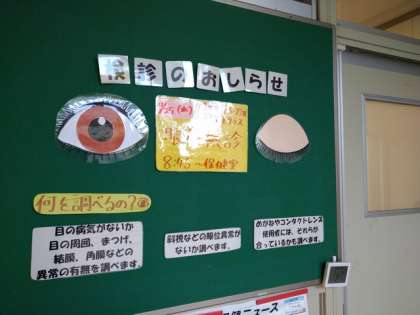 検診のおしらせ
8:45〜保健室
何を調べるの?
目の病気がないか
目の周囲、まつげ、
結膜、角膜などの
異常の有無を調べます。
斜視などの眼位異常が
ないか調べます。
めがねやコンタクトレンズ
使用者には、それらが
合っているかも調べます。
ニュース